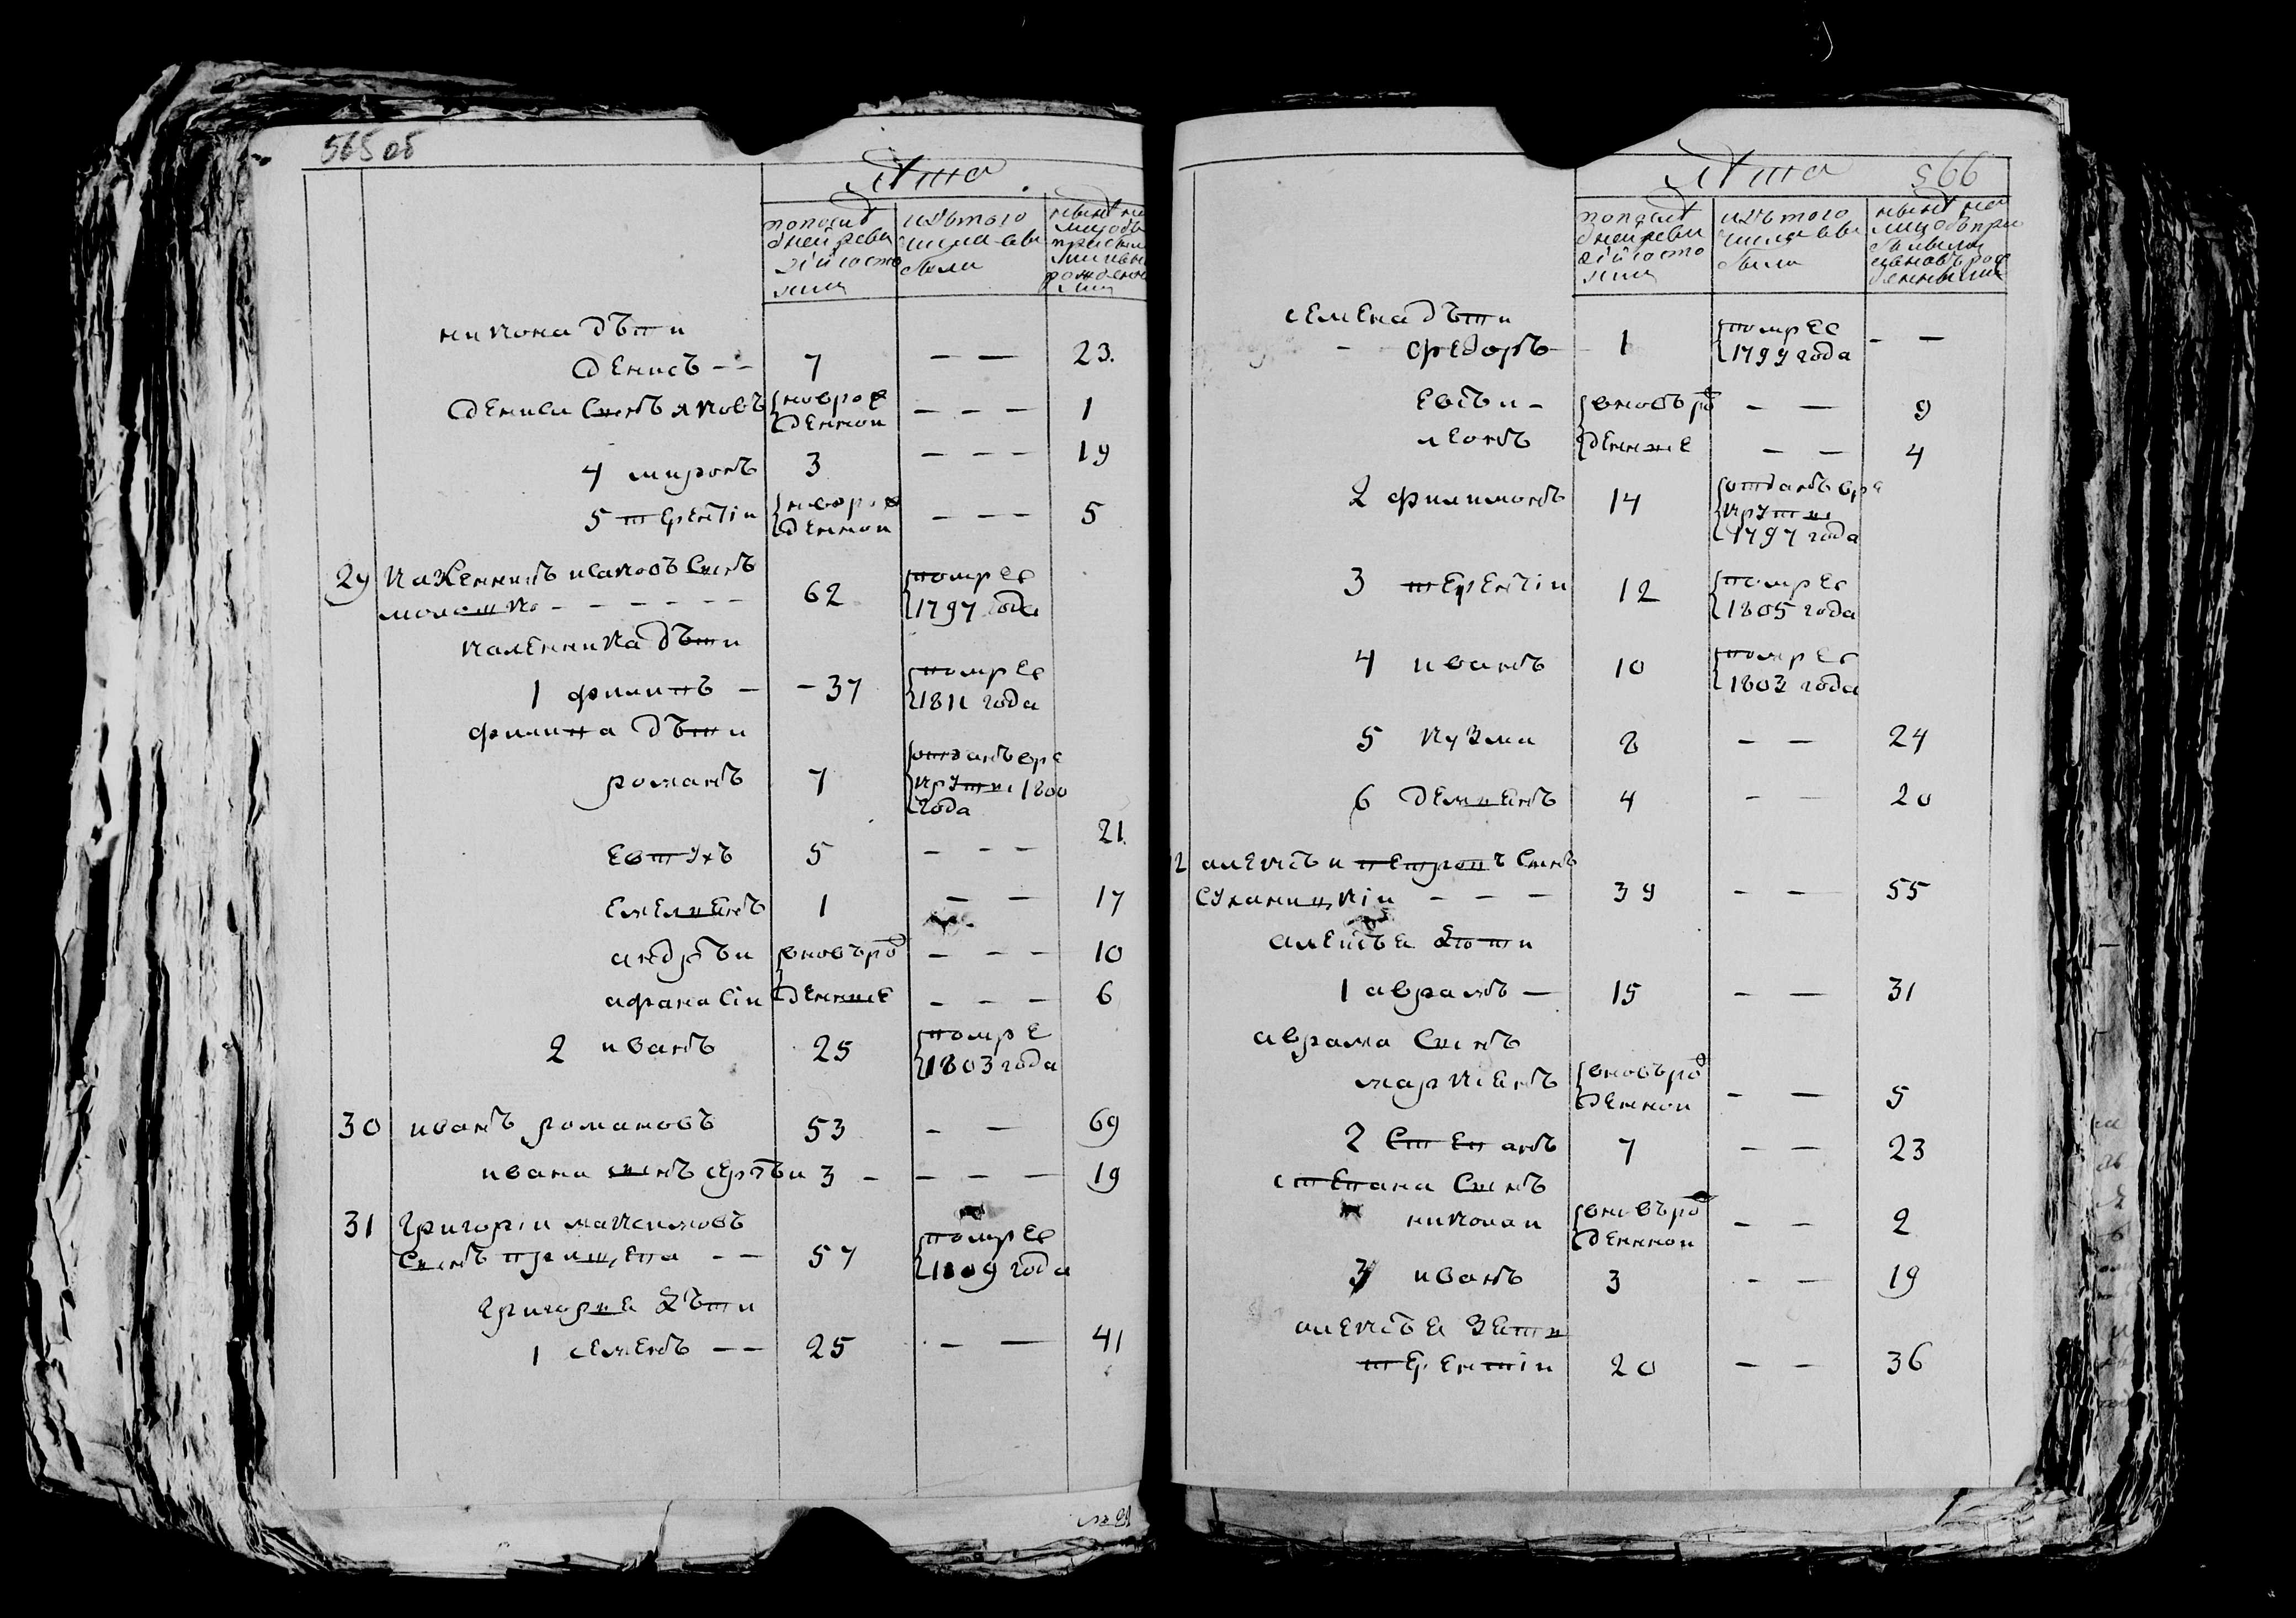 565 об
Лѣта
попослѣ
дней реви
зіи состо
яли
изъ того
числа вы
были
нынѣ на
лицо съ
прибыл
рожденн
никона дѣти
денисъ - - 7 — — 23.
дениса сынъ яковъ новорож
денной - - - 1
4 миронъ 3 - - - 19
5 терентіи новорож
денной - - - 5
29 калѣнникъ исаковъ сынъ
62 помре
1797 года
каленника дѣти
1 филипъ — - 37 помре
1811 года
филипа дѣти
романъ 7 отданъ в ре
круты 1800
года
евтухъ 5 - - - 21.
емелианъ 1 — — 17
андрѣи вновъ ро - - - 10
афанасіи жденные - - - 6
2 иванъ 25 помре
1803 года
30 иванъ романовъ 53 - — 69
ивана сынъ сергѣи 3 - - - — 19
31 григоріи максимовъ
сынъ прищепа - — 57 помре
1809 года
григориа дѣти
1 семенъ — — 25 - — 41
Лѣта 566
попослѣ
дней реви
зіи состо
яли
изъ того
числа вы
были
нынѣ на
лицо съ при
былыми
вновъ рож
денными
семена дѣти
- федоръ 1 помре
1799 года - —
евсѣи - вновъ ро — — 9
леонъ жденные — — 4
2 филимонъ 14 отданъ в ре
круты
1797 года
3 терентіи 12 помре
1805 года
4 иванъ 10 помре
1803 года
5 кузма 8 — — 24
6 демианъ 4 - — 20
2 алексѣи петровъ сынъ
- - — 39 - — 55
алексѣа дѣти
1 аврамъ — 15 - — 31
аврама сынъ
маркианъ вновъ ро
жденнои - — 5
2 степанъ 7 — — 23
степана сынъ
николаи вновъ ро
жденнои - - 2
3 иванъ 3 - — 19
алексѣа зати
терентіи 20 — — 36